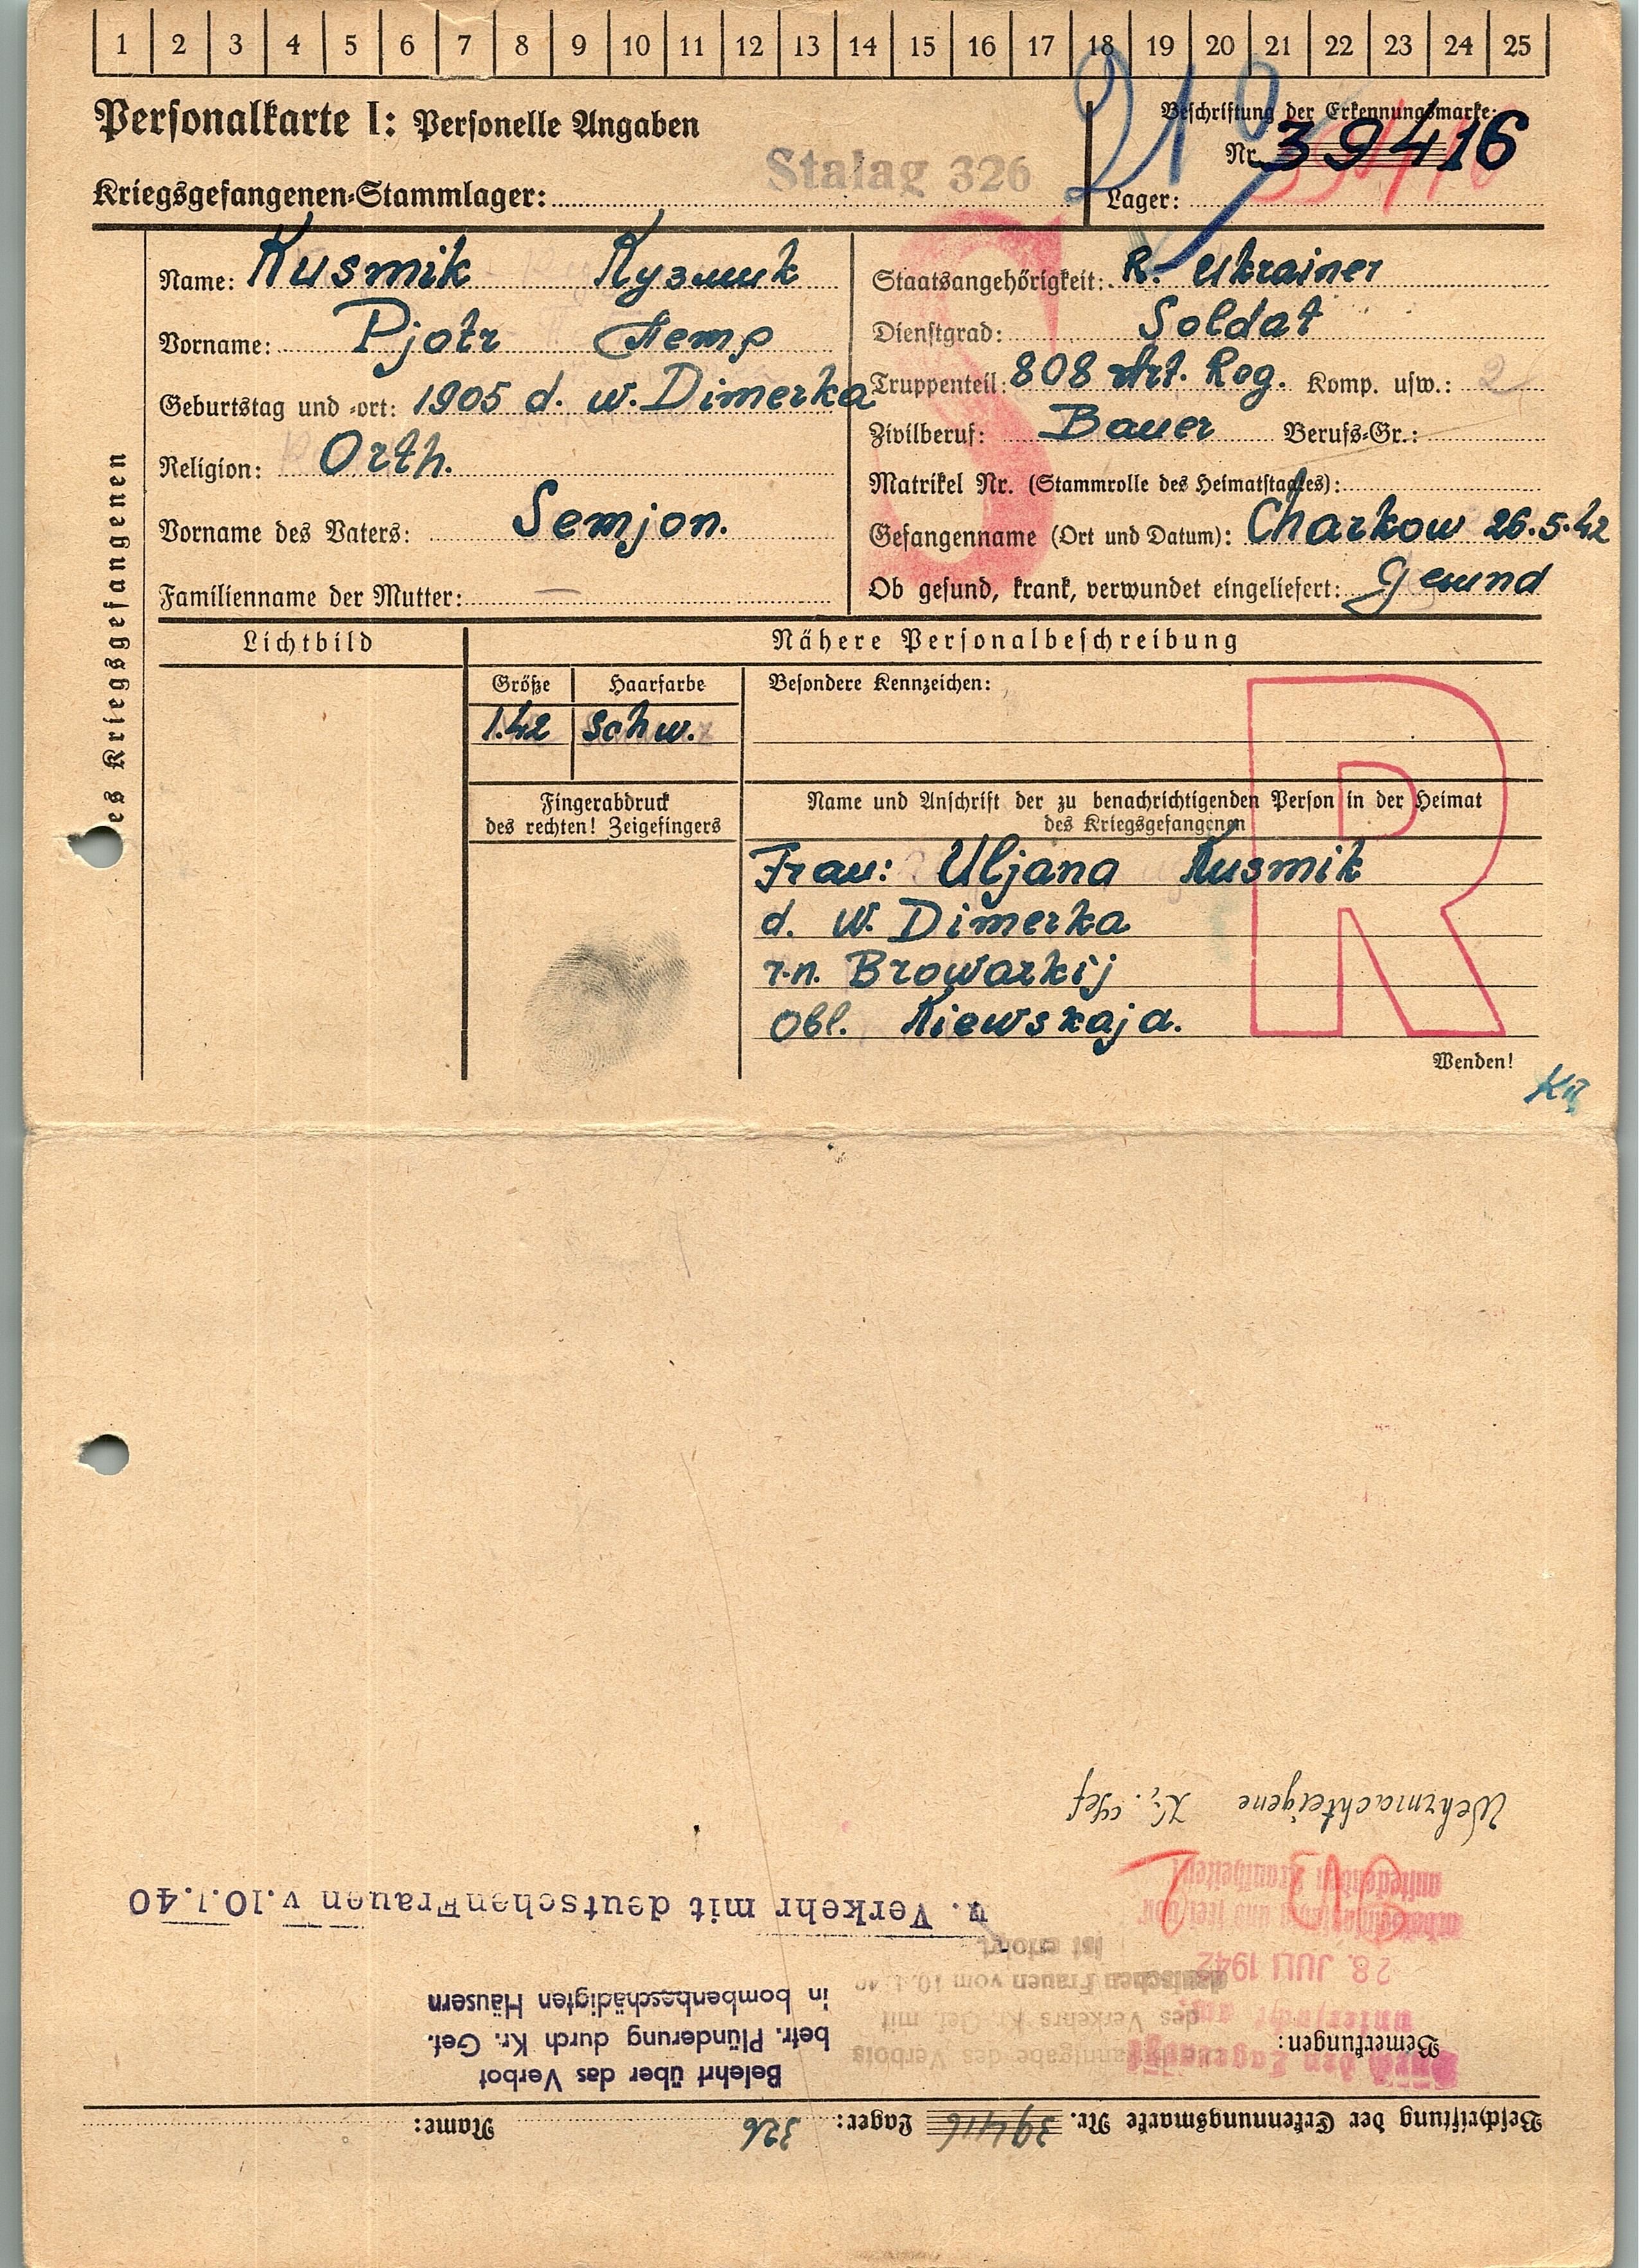 1 2 3 4 5 6 7 8 9 10 11 12 13 14 15 16 17 18 19 20 21 22 23 24 25
Personalkarte I: Personelle Angaben
Stalag 326
Kriegsgefangenen-Stammlager:
Beschriftung der Erkennungsmarke:
Nr. 39416
Lager:
des Kriegsgefangenen
Name: Kusmik Кузмик
Vorname: Pjotr Петр
Geburtstag und -ort: 1905 d. w. Dimerka
Religion: Orth.
Vorname des Vaters: Semjon.
Familienname der Mutter: —
Staatsangehörigkeit: R. Ukrainer
Dienstgrad: Soldat
Truppenteil: 808 Art. Reg. Komp. usw.: 2
Zivilberuf: Bauer Berufs-Gr.:
Matrikel Nr. (Stammrolle des Heimatstaates):
Gefangenname (Ort und Datum): Charkow 26.5.42
Ob gesund, krank, verwundet eingeliefert: Gesund
S
Lichtbild
Nähere Personalbeschreibung
Größe Haarfarbe Besondere Kennzeichen:
1.42 schw.
Fingerabdruck
des rechten! Zeigefingers
Name und Anschrift der zu benachrichtigenden Person in der Heimat
des Kriegsgefangenen
Frau: Uljana Kusmik
d. W. Dimerka
r-n. Browarkij
Obl. Kiewskaja.
R
Wenden!
Beschriftung der Erkennungsmarke Nr. 39416 Lager: 326 Name:
Bemerkungen:
Belehrt über das Verbot
betr. Plünderung durch Kr. Gef.
in bombenbeschädigten Häusern
des Verbots
des Verkehrs Kr. Gef. mit
deutschen Frauen vom 10.1.40
ist erfolgt.
28. JULI 1942
u. Verkehr mit deutschen Frauen v. 10.1.40
Wehrmachteigene Kr. Gef